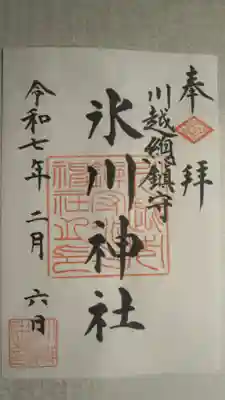 奉拝
川越總鎮守
氷川神社
令和七年二月六日